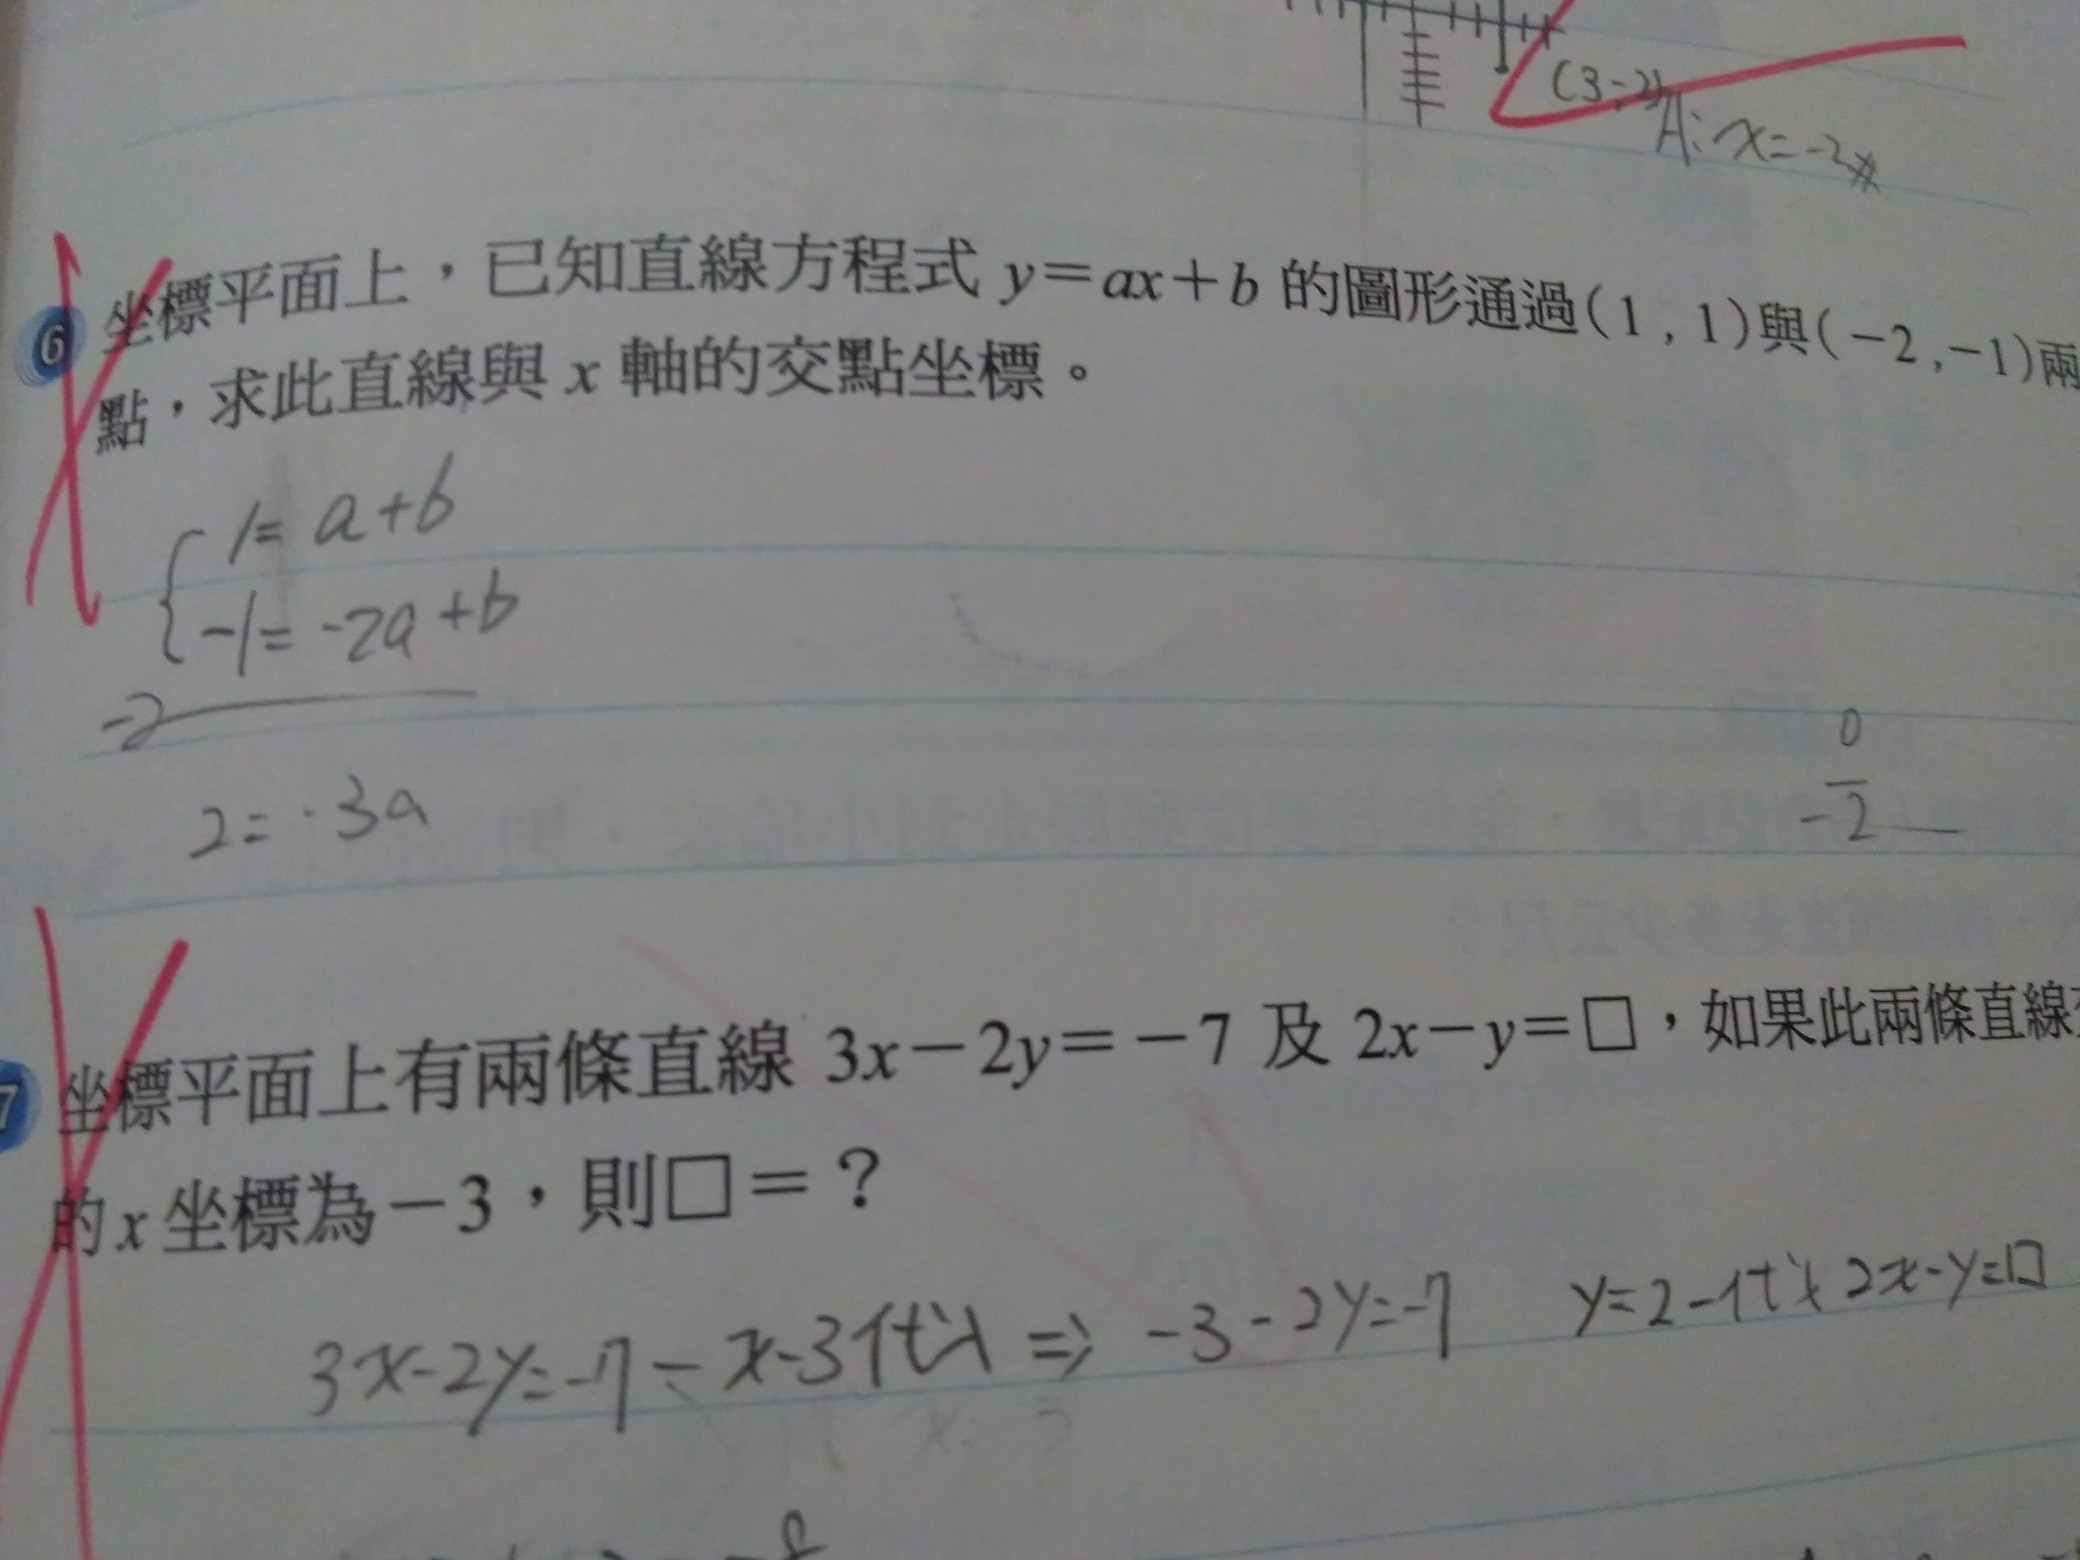 (3,-2)
A: x=-2#
6 坐標平面上，已知直線方程式 y=ax+b 的圖形通過(1 , 1)與(-2 , -1)兩
點，求此直線與 x 軸的交點坐標。
1= a+b
-1= -2a+b
-2
2= -3a
0
-2
7 坐標平面上有兩條直線 3x-2y=-7 及 2x-y=□，如果此兩條直線
的 x 坐標為-3，則□=？
3x-2y=-7 - x-3代入 ⇒ -3-2y=-7 y=2-代入 2x-y=□